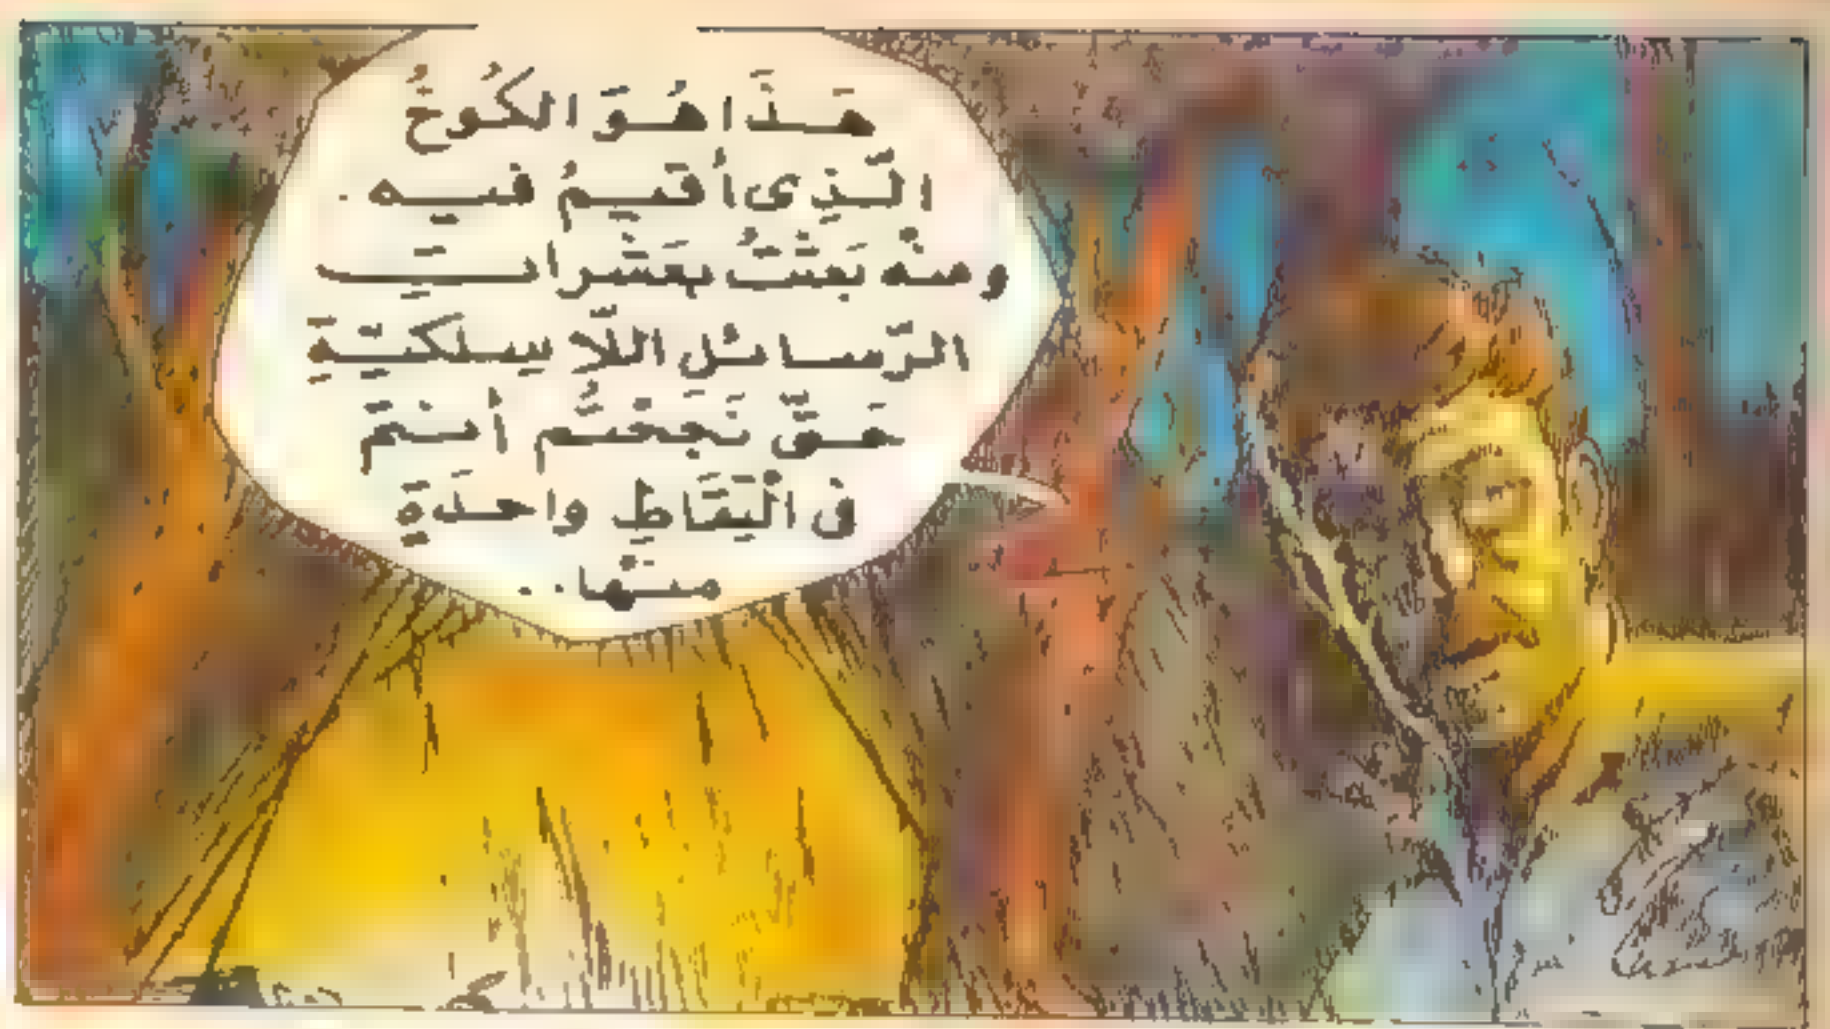 هَذَا هُوَ الكُوخُ
الَّذِى أُقيمُ فيه .
ومنْه بَعَثْتُ بعَشَراتِ
الرّسائلِ اللّاسِلكيّةِ
حَتَّى نَجَحْتُم أَنتمْ
فى الْتِقَاطِ واحدَةٍ
منها . .